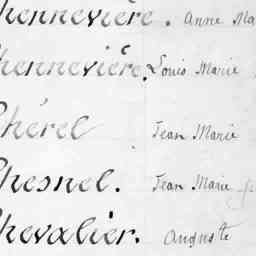 hennevière. Anne Ma
hennevière. Louis Marie
Chérel Jean Marie
Chesnel. Jean Marie
Chevalier. Auguste